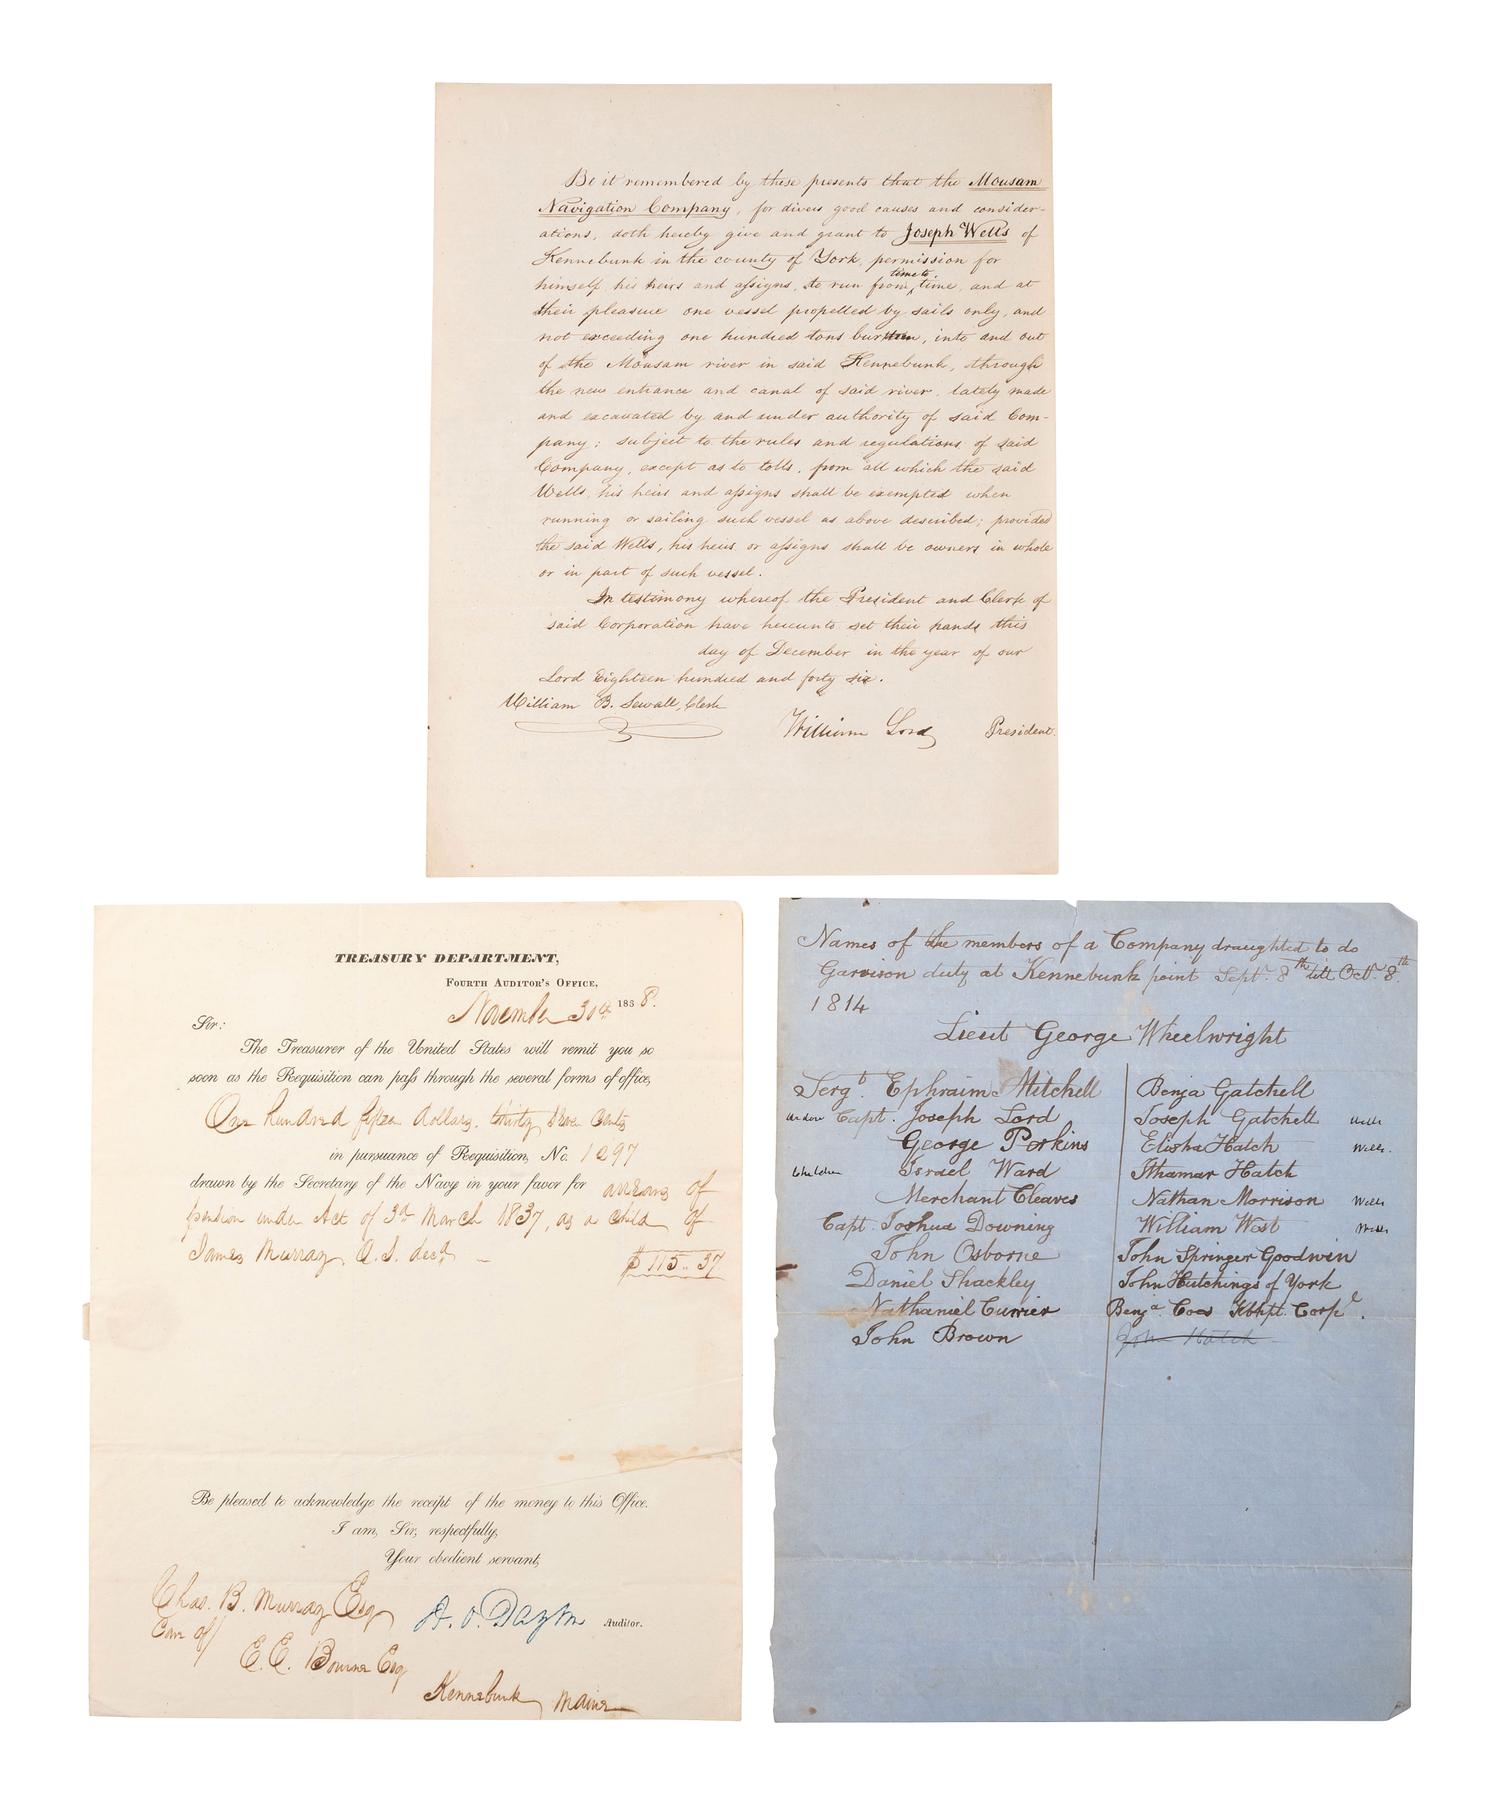 Be it remembered by these presents that the Mousam
Navigation Company, for divers good causes and consider-
ations, doth hereby give and grant to Joseph Wells of
Kennebunk in the county of York, permission for
himself, his heirs and assigns, to run from time to time, and at
their pleasure one vessel propelled by sails only, and
not exceeding one hundred tons burthen, into and out
of the Mousam river in said Kennebunk, through
the new entrance and canal of said river, lately made
and excavated by and under authority of said Com-
pany; subject to the rules and regulations of said
Company, except as to tolls, from all which the said
Wells, his heirs and assigns shall be exempted when
running or sailing such vessel as above described; provided
the said Wells, his heirs or assigns shall be owners in whole
or in part of such vessel.
In testimony whereof the President and Clerk of
said Corporation have hereunto set their hands this
day of December in the year of our
Lord Eighteen hundred and forty six.
William B. Sewall, Clerk
William Lord President.
TREASURY DEPARTMENT,
FOURTH AUDITOR'S OFFICE,
November 30th 1838.
Sir:
The Treasurer of the United States will remit you so
soon as the Requisition can pass through the several forms of office,
One hundred fifteen dollars, thirty seven cents
in pursuance of Requisition, No. 1297
drawn by the Secretary of the Navy in your favor for arrears of
pension under Act of 3d March 1837, as a child of
James Murray, O.S. decd. —
$115..37
Be pleased to acknowledge the receipt of the money to this Office.
I am, Sir, respectfully,
Your obedient servant,
Chas. B. Murray Esq
Care of
A. O. Dayton Auditor.
E. E. Bourne Esq
Kennebunk Maine
Names of the members of a Company draughted to do
Garrison duty at Kennebunk point Sept. 8th till Oct. 8th
1814
Lieut George Wheelwright
Sergt Ephraim Mitchell
Capt. Joseph Lord
George Perkins
Israel Ward
Merchant Cleaves
Capt. Joshua Downing
John Osborne
Daniel Shackley
Nathaniel Currier
John Brown
Benja Gatchell
Joseph Gatchell Wells
Elisha Hatch Wells.
Ithamar Hatch
Nathan Morrison Wells
William West Wells
John Springer Goodwin
John Hutchings of York
Benja Coes Kbkpt. Corpl.
Jon Hatch